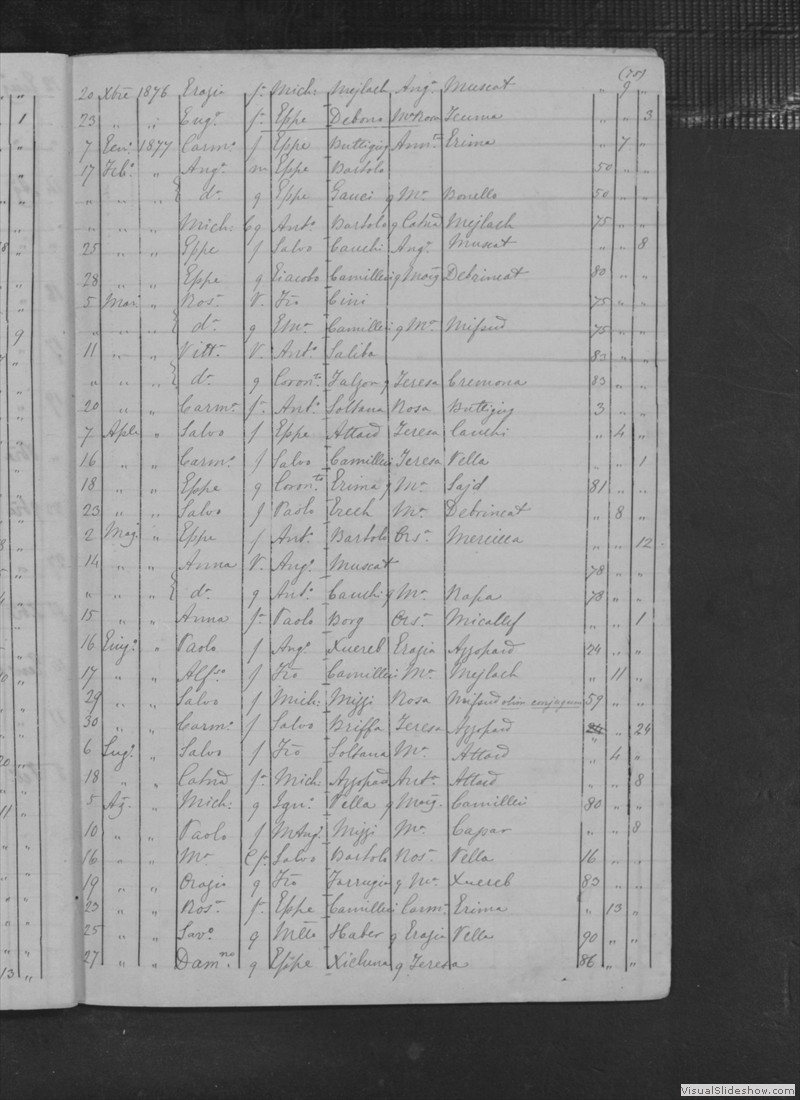 (75)
20 Xbre 1876 Erazia f. Mich: Mejlach Ang. Muscat " 9 "
23 " " Eug. f. Eppe Debono Mª Rosa Teuma " " 3
7 1877 Carm. f Eppe Buttigieg Ann. Erima " 7 "
17 Feb. " Ang. m Eppe Bartolo 50 " "
" " " d. g Eppe Gauci g M. Bonello 50 " "
" " Mich: Cg Ant. Bartolo g Catnd Mejlach 75 " "
25 " " Eppe f Salvo Cauchi Ang. Muscat " " 8
28 " " Eppe g Giacobo Camilleri g Debrincat 80 " "
5 Mar. " Ros. V. Fro Cini 75 " "
" " " d. g Camilleri g M. Mifsud 75 " "
11 " " Vitt. V. Ant. Saliba 83 " "
" " " d. g Coron. Falzon g Teresa Cremona 83 " "
20 " " Carm. f. Ant. Soltana Rosa Buttigieg 3 " "
7 Aple " Salvo f Eppe Attard Teresa Cauchi " 4 "
16 " " Carm. f Salvo Camilleri Teresa Vella " " 1
18 " " Eppe g Coron. Erima g M. Sajd 81 " "
23 " " Salvo f Paolo Erech M. Debrincat " 8 "
2 Mag. " Eppe f Ant. Bartolo Ors. Mercieca " " 12
14 " " Anna V. Ang. Muscat 78 " "
" " " d. g Ant. Cauchi g M. Rapa 78 " "
15 " " Anna f. Paolo Borg Ors. Micallef " " 1
16 Giug. " Paolo f Ang. Xuereb Erazia Azzopard 24 " "
17 " " Alf. f Fro Camilleri M. Mejlach " 11 "
29 " " Salvo f Mich: Mizzi Rosa Mifsud olim conjugum 59 " "
30 " " Carm. f Salvo Briffa Teresa Azzopard " " 24
6 Lug. " Salvo f Fro Soltana M. Attard " 4 "
18 " " Catnd f. Mich Azzopard Ant. Attard " " 8
5 Ag. " Mich: g Ign. Vella g Camilleri 80 " "
10 " " Paolo f M Ang. Mizzi M. Capar " " 8
16 " " M. C f. Salvo Bartolo Ros. Vella 16 " "
19 " " Orazio g Fro Farrugia g M. Xuereb 83 " "
23 " " Ros. f. Eppe Camilleri Carm. Erima " 13 "
25 " " Sav. g Haber g Erazia Vella 90 " "
27 " " Dam. g Eppe Xicluna g Teresa 86 " "
VisualSlideshow.com